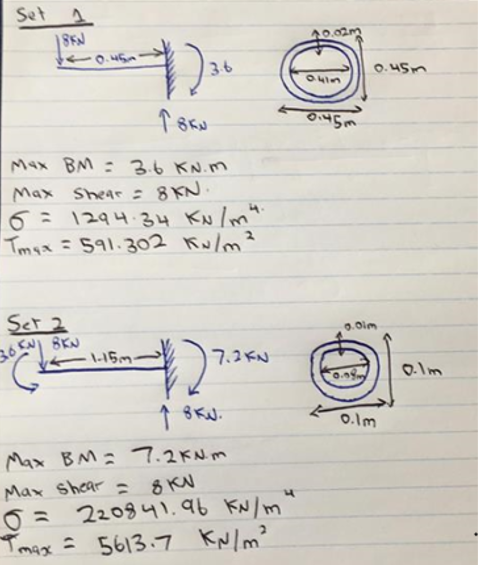 Set 1
8KN
0.45m
3.6
8KN
0.02m
0.41m
0.45m
0.45m
Max BM = 3.6 KN.m
Max shear = 8KN.
σ = 1294.34 KN/m⁴
τmax = 591.302 KN/m²
Set 2
3.6KN
8KN
1.15m
7.2KN
8KN.
0.01m
0.08m
0.1m
0.1m
Max BM = 7.2KN.m
Max shear = 8KN
σ = 220841.96 KN/m⁴
τmax = 5613.7 KN/m²